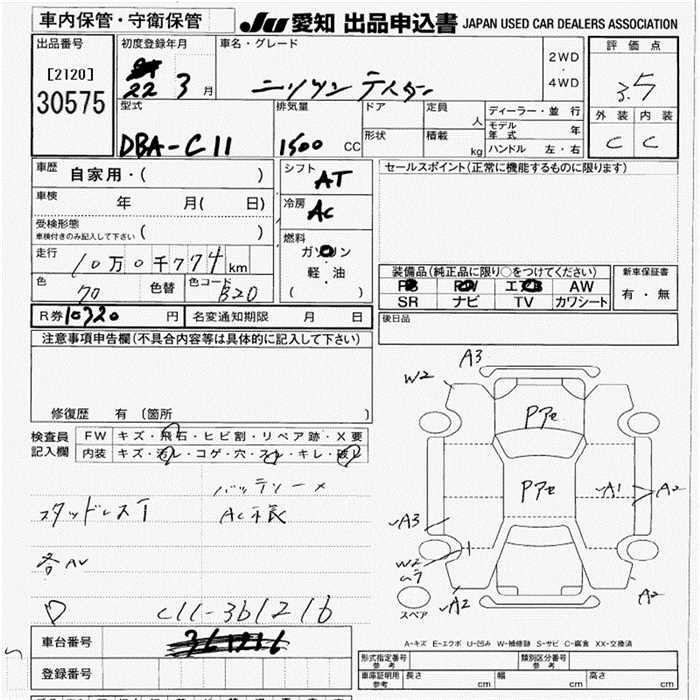 車内保管・守衛保管 JU 愛知 出品申込書 JAPAN USED CAR DEALERS ASSOCIATION
出品番号 初度登録年月 車名・グレード 評価点
[2120] 22 3 月 2WD・4WD 3.5
30575 型式 排気量 ドア 定員 人 ディーラー・並行 外装 内装
モデル年式 年
DBA-C11 1500 CC 形状 積載 kg ハンドル 左・右 C C
車歴 自家用・( ) シフト AT セールスポイント(正常に機能するものに限ります)
車検 年 月( 日) 冷房 AC
受検形態 車検付きのみ記入して下さい ( )
燃料 ガソリン
走行 10万0千774km 軽・油 装備品(純正品に限り○をつけてください) 新車保証書
( ) AW 有・無
色 色替 色コード B20 SR ナビ TV カワシート
R券 10320 円 名変通知期限 月 日 後日品
注意事項申告欄(不具合内容等は具体的に記入して下さい)
修復歴 有 (箇所 )
検査員記入欄 FW キズ・飛石・ヒビ割・リペア跡・X要
内装 キズ・汚レ・コゲ・穴・スレ・キレ・破レ
A3
W2
Pアセ
Pアセ
A1 A2
A3
W2
ムラ
A2 A2
スペア
バッテリー×
スタッドレスT
C11-361216
A-キズ E-エクボ U-凹み W-補修跡 S-サビ C-腐食 XX-交換済
車台番号 361216
登録番号
形式指定番号 参考 類別区分番号 参考
車庫証明用 参考 長さ cm 幅 cm 高さ cm